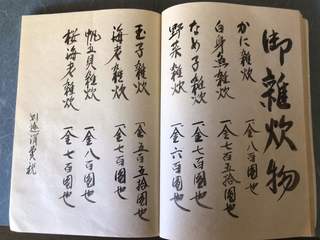 御雜炊物
かに雜炊 一金八百圓也
白身魚雜炊 一金五百五拾圓也
なめ子雜炊 一金七百圓也
野菜雜炊 一金六百圓也
玉子雜炊 一金五百五拾圓也
海老雜炊 一金七百圓也
帆立貝雜炊 一金八百圓也
桜海老雜炊 一金七百圓也
別途消費税